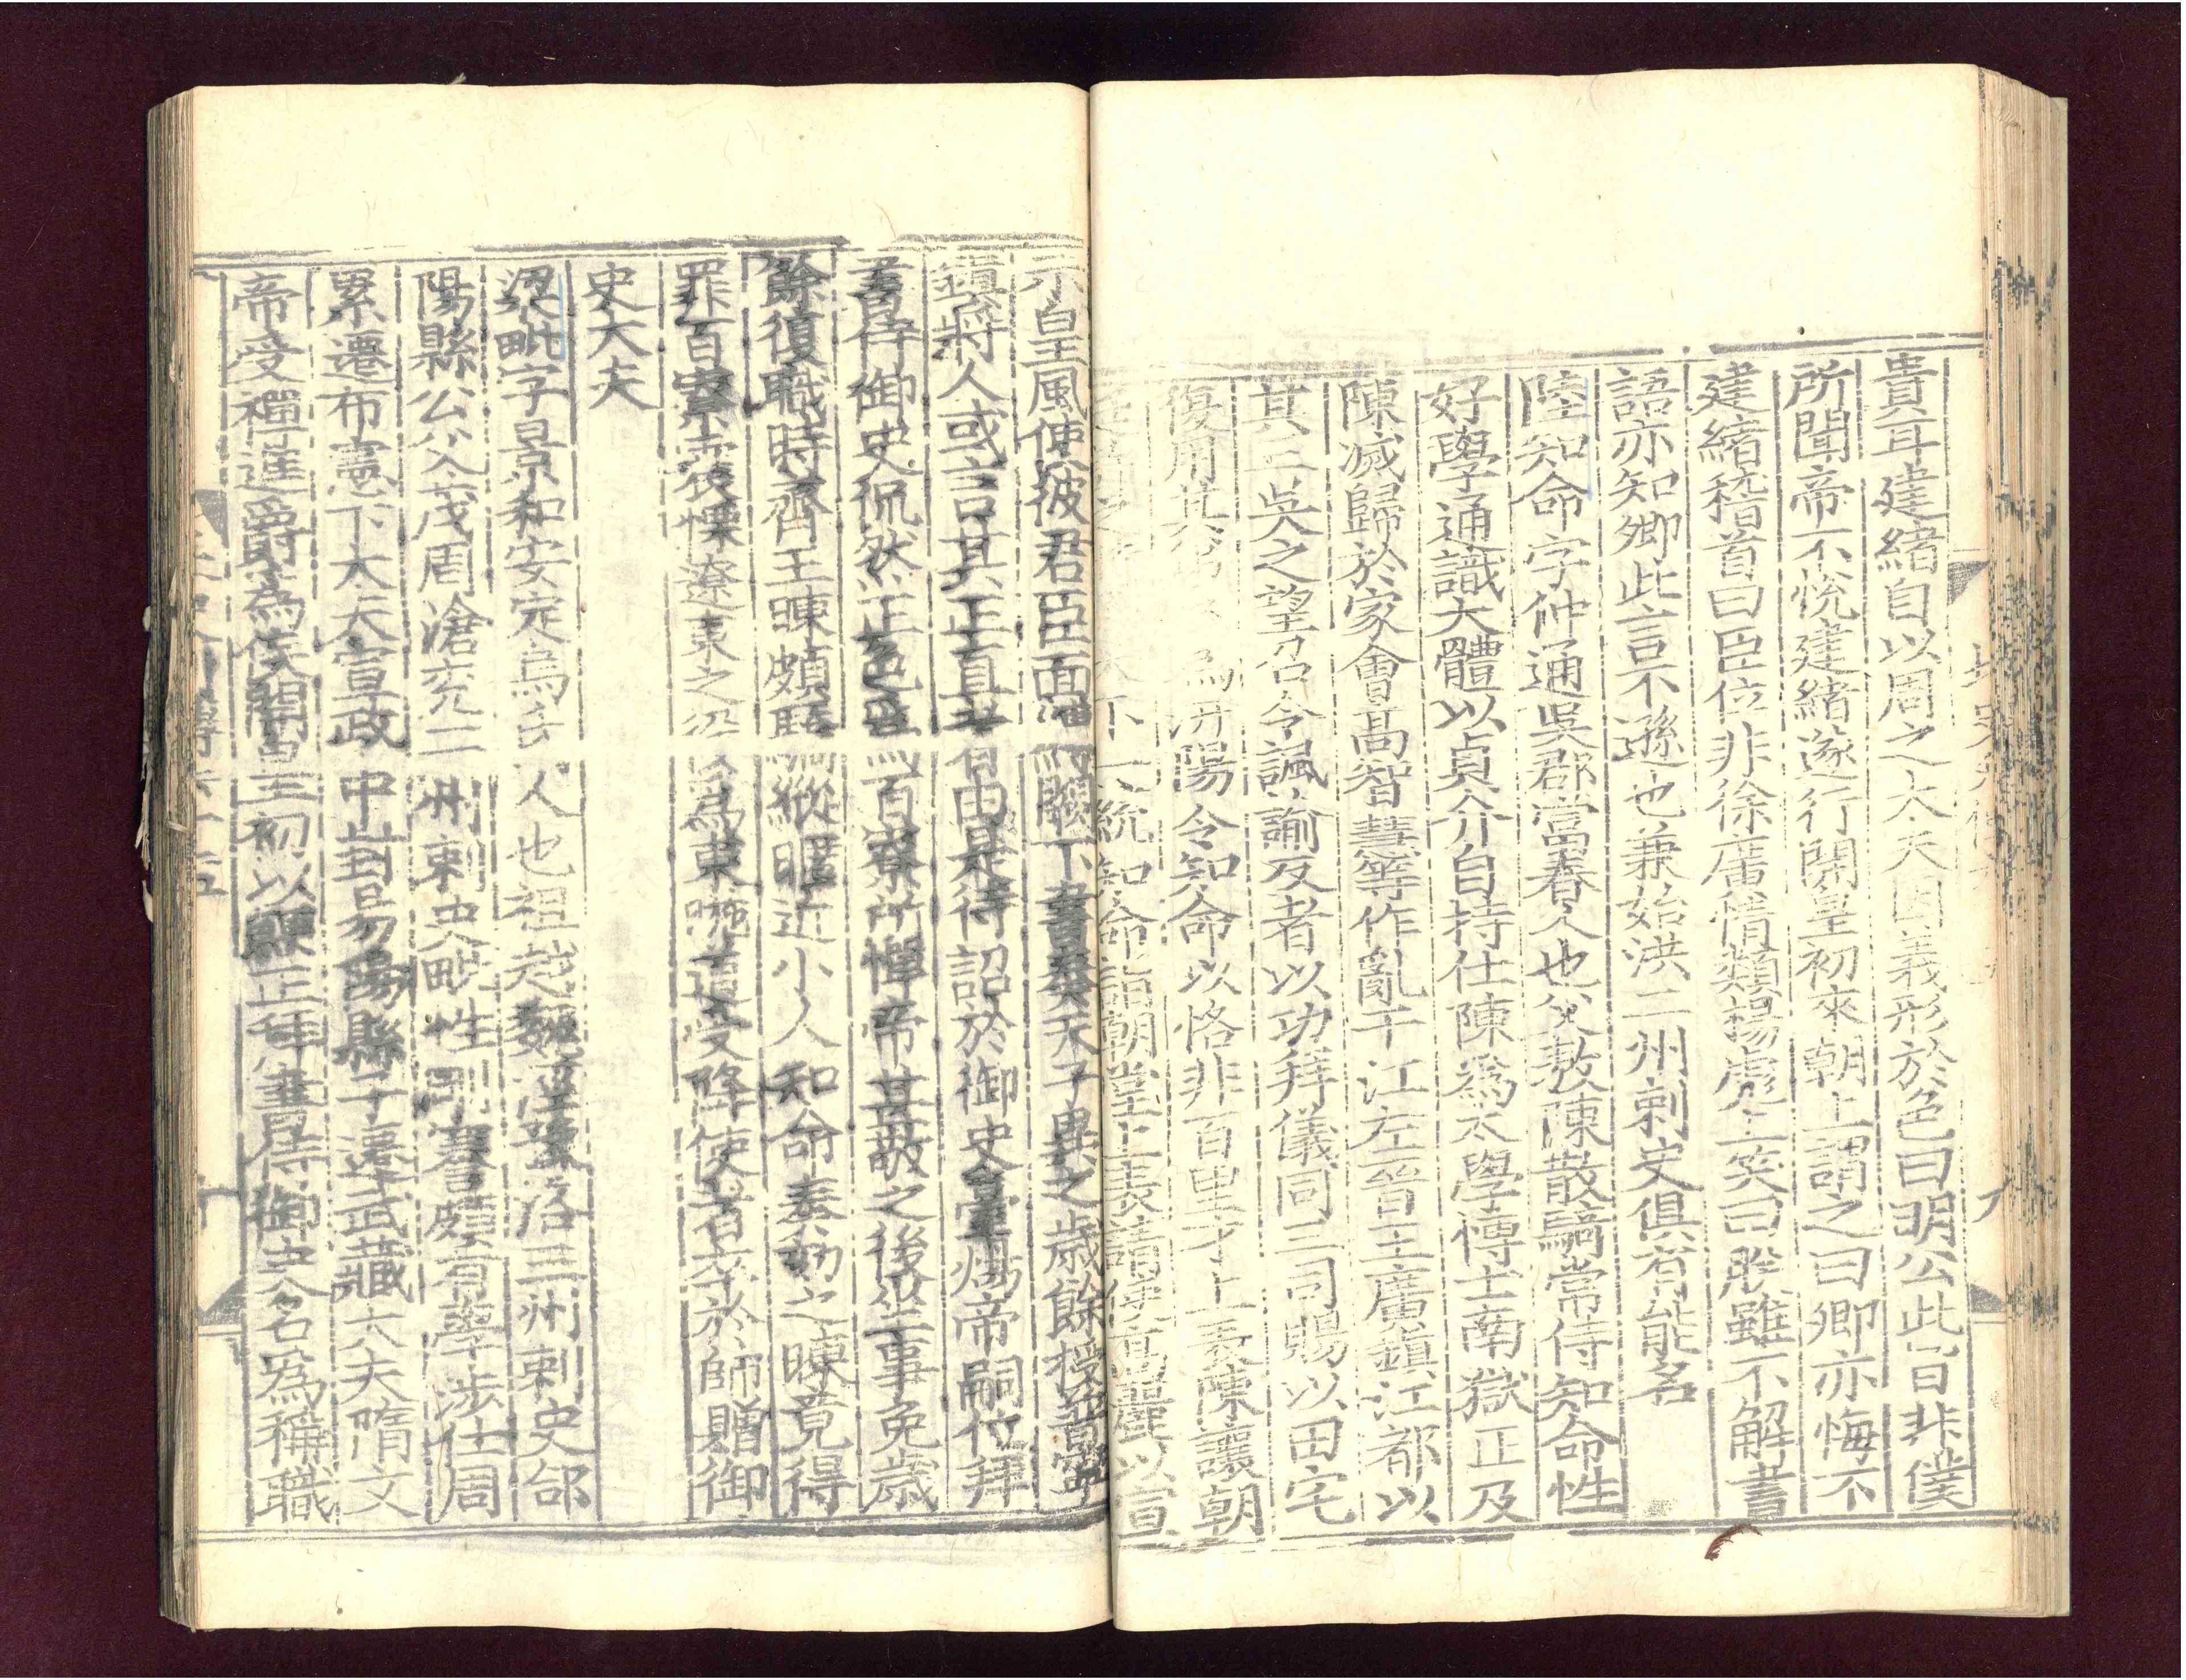 貴耳建緒自以周之大夫因義形於色曰明公此旨非僕
所聞帝不悅建緒遂行開皇初來朝上謂之曰卿亦悔不
建緒稽首曰臣位非徐廣情類楊彪上笑曰朕雖不解書
語亦知卿此言不遜也兼始洪二州刺史俱有能名
陸知命字仲通吳郡富春人也父敖陳散騎常侍知命性
好學通識大體以貞介自持仕陳爲太學博士南獄正及
陳滅歸於家會高智慧等作亂于江左晉王廣鎮江都以
其三吳之望召令諷諭反者以功拜儀同三司賜以田宅
復用其弟爲汧陽令知命以恪非百里才上表陳讓朝
下一統知命詣朝堂上表請使高麗以宣
示皇風使彼君臣面縛闕下書奏天子異之歲餘授普寧
鎮將人或言其正直者由是待詔於御史臺煬帝嗣位拜
書侍御史侃然正色爲百寮所憚帝甚敬之後坐事免歲
餘復職時齊王暕頗驕縱暱近小人知命奏劾之暕竟得
罪百寮震慄遼東之役爲東暆道受降使者卒於師贈御
史大夫
梁毗字景和安定烏氏人也祖越魏涇豫洛三州刺史郃
陽縣公父茂周滄兖二州刺史毗性剛謇頗有學涉仕周
累遷布憲下大夫宣政中封易陽縣子遷武藏大夫隋文
帝受禪進爵爲侯開皇初以鯁正拜書侍御史名爲稱職